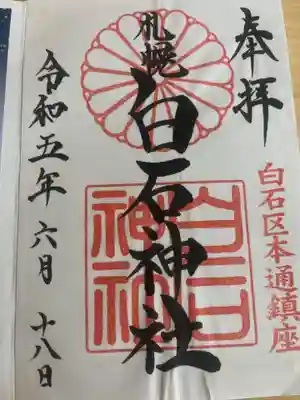 奉拝
白石区本通鎮座
札幌
白石神社
白石神社
令和五年六月十八日